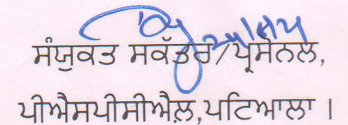 ਸੰਯੁਕਤ ਸਕੱਤਰ/ਪ੍ਰਸੋਨਲ,
ਪੀਐਸਪੀਸੀਐਲ਼,ਪਟਿਆਲਾ ।